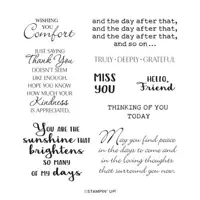 WISHING
YOU
Comfort
and the day after that,
and the day after that,
and the day after that,
and so on...
JUST SAYING
Thank You
DOESN'T SEEM
LIKE ENOUGH.
HOPE YOU KNOW
HOW MUCH YOUR
Kindness
IS APPRECIATED.
TRULY • DEEPLY • GRATEFUL
MISS
YOU
HELLO,
Friend
THINKING OF YOU
TODAY
YOU ARE THE
sunshine that
brightens
SO MANY
of my days
May you find peace
in the days to come and
in the loving thoughts
that surround you now.
©STAMPIN' UP!